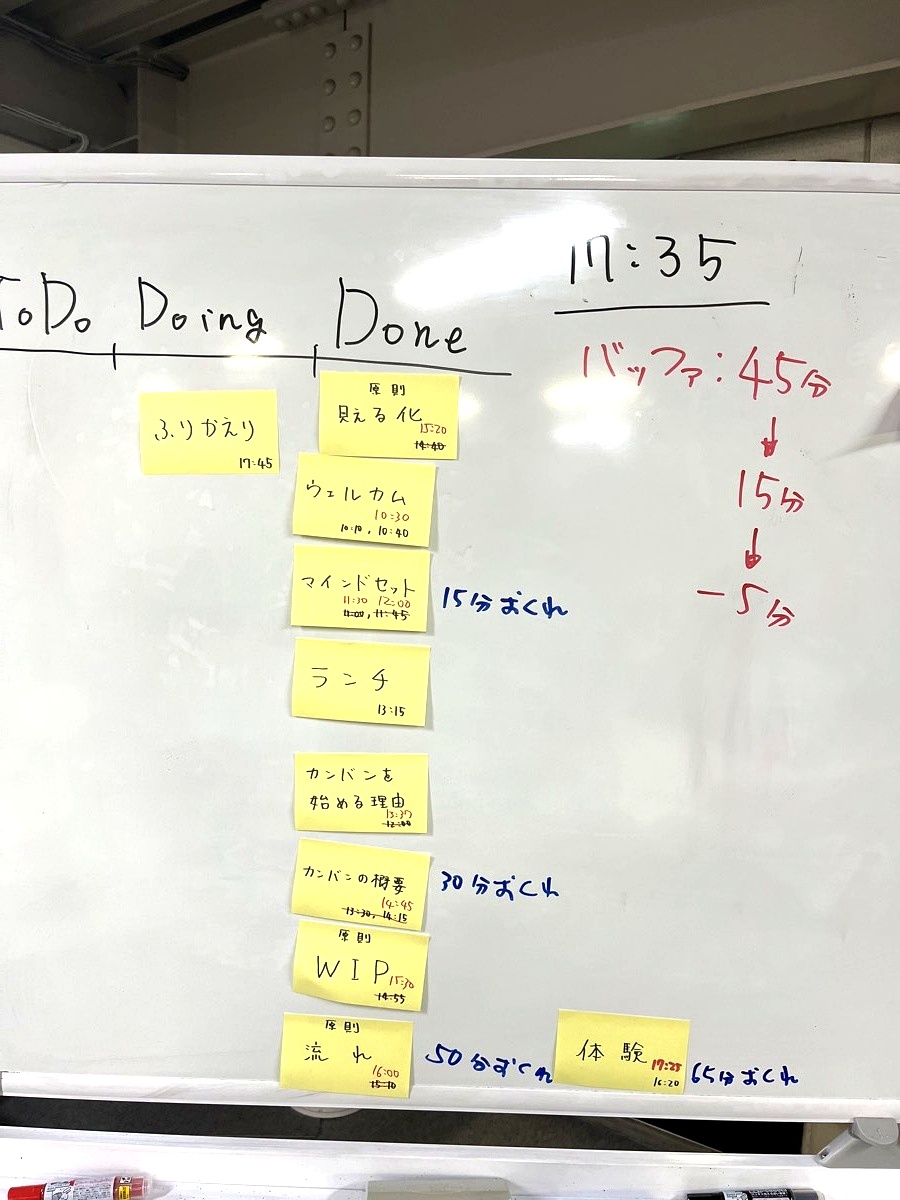 ToDo Doing Done
17:35
バッファ:45分
↓
15分
↓
-5分
ふりかえり
17:45
原則
見える化
15:20
14:40
ウェルカム
10:30
10:10, 10:40
マインドセット
11:30 12:00
11:45
15分おくれ
ランチ
13:15
カンバンを
始める理由
13:37
カンバンの概要
14:45
13:30, 14:15
30分おくれ
原則
WIP
15:30
14:55
原則
流れ
16:00
15:10
50分おくれ
体験
17:25
16:20
65分おくれ